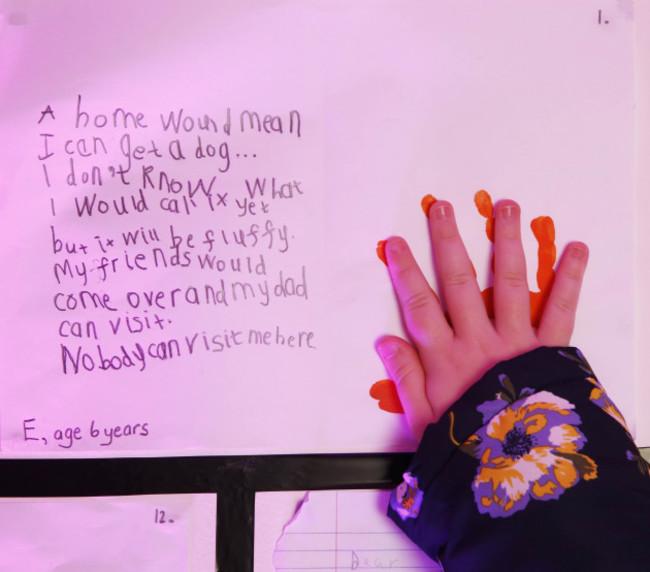 1.
A home would mean
I can get a dog...
I don't know what
I would call it yet
but it will be fluffy.
My friends would
come over and my dad
can visit.
Nobody can visit me here
E, age 6 years
12.
Dear